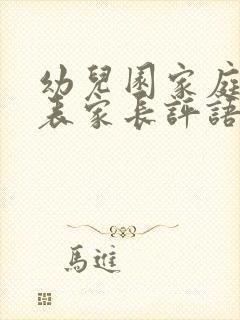 幼兒園家庭
表家長評語
馬進